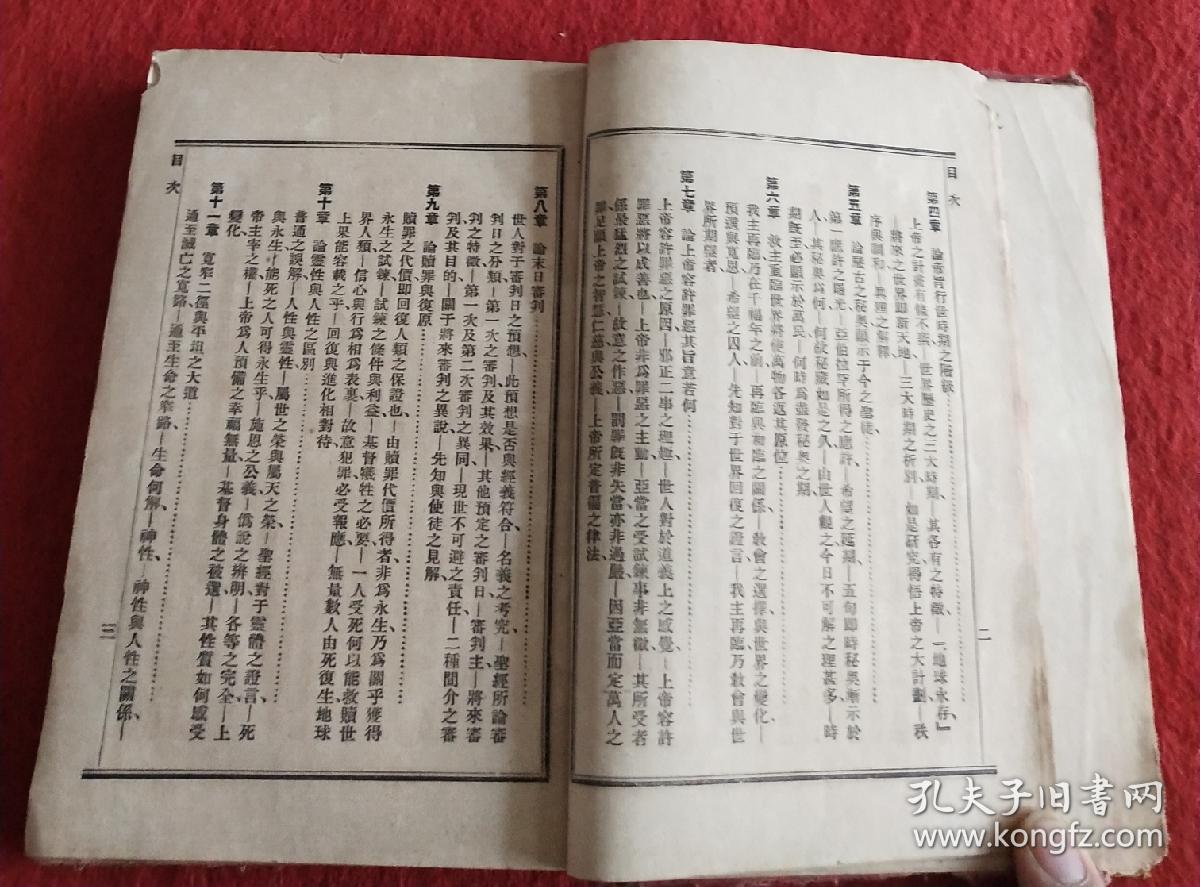 目次
第四章　論帝諭行世時期之階級
上帝之計畫有條不紊—世界歷史之三大時期—其各有之特徵—「地球永存」
—將來之世界即新天地—三大時期之析別—如是研究得悟上帝之大計劃、秩
序與調和、眞理之解釋
第五章　論聚古之秘奧顯示于今之聖徒
第一應許之曙光—亞伯拉罕所得之應許—希望之延期—五旬節時秘奧漸示於
人—其秘奧爲何—何故秘藏如是之久—由世人觀之今日不可解之理甚多—時
期旣至必顯示於萬民—何時爲盡發秘奧之期、
第六章　救主重臨世界將使萬物各返其原位
我主再臨乃在千禧年之前、再臨與初臨之關係—敎會之選擇與世界之變化—
預選與寬恩—希望之囚人—先知對于世界回復之證言—我主再臨乃敎會與世
界所期望者
第七章　論上帝容許罪惡其旨意若何
上帝容許罪惡之原因—邪正二事之理趣—世人對於道義上之感覺—上帝容許
罪惡將以成善也—上帝非爲罪惡之主動—亞當之受試鍊事非無徵—其所受者
係最猛烈之試鍊—故意之作惡—罰罪旣非失當亦非過嚴—因亞當而定萬人之
罪足顯上帝之智慧仁慈與公義—上帝所定普遍之律法
二
第八章　論末日審判
世人對于審判日之預想—此預想是否與經義符合—名義之考究—聖經所論審
判日之分類—第一次之審判及其效果—其他預定之審判日—審判主—將來審
判之特徵—第一次及第二次審判之異同—現世不可避之責任—二種間介之審
判及其目的—關于將來審判之異說—先知與使徒之見解
第九章　論贖罪與復原
贖罪之代價即回復人類之保證也—由贖罪代價所得者非爲永生乃爲關乎獲得
永生之試鍊—試鍊之條件與利益—基督犧牲之必要—一人受死何以能救贖世
界人類—信心與行爲相爲表裏—故意犯罪必受報應—無量數人由死復生地球
上果能容載之乎—回復與進化相對待
第十章　論靈性與人性之區別
普通之誤解—人性與靈性—屬世之榮與屬天之榮—聖經對于靈體之證言—死
與永生—能死之人可得永生乎—施恩之公義—僞說之辨明—各等之完全—上
帝主宰之權—上帝爲人預備之幸福無量—基督身體之被選—其性質如何感受
變化
第十一章　寬窄二徑與平坦之大道
通至滅亡之寬路—通至生命之窄路—生命何解—神性—神性與人性之關係—
目次
三
孔夫子旧书网
www.kongfz.com